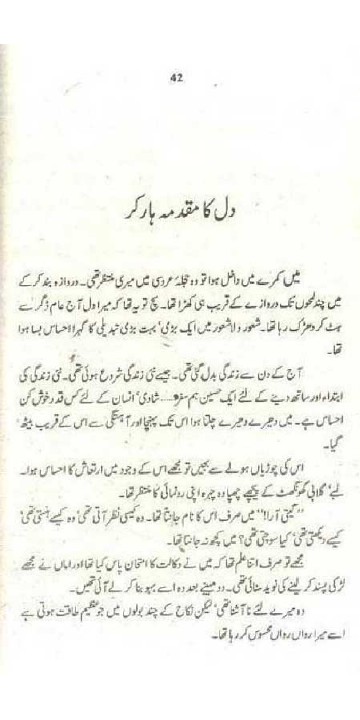 42
دل کا مقدمہ ہار کر
میں کمرے میں داخل ہوا تو وہ حجلۂ عروسی میں میری منتظر تھی۔ دروازہ بند کر کے
میں چند لمحوں تک دروازے کے قریب ہی کھڑا تھا۔ سچ تو یہ تھا کہ میرا دل آج عام ڈگر سے
ہٹ کر دھڑک رہا تھا۔ شعور و لاشعور میں ایک بڑی‘ بہت بڑی تبدیلی کا گہرا احساس بسا ہوا
تھا۔
آج کے دن سے زندگی بدل گئی تھی۔ جیسے نئی زندگی شروع ہوئی تھی۔ نئی زندگی کی
ابتداء اور ساتھ دینے کے لئے ایک حسین ہم سفر.... شادی‘ انسان کے لئے کس قدر خوش کن
احساس ہے۔ میں دھیرے دھیرے چلتا ہوا اس تک پہنچا اور آہستگی سے اس کے قریب بیٹھ
گیا۔
اس کی چوڑیاں ہولے سے بجیں تو مجھے اس کے وجود میں ارتعاش کا احساس ہوا۔
لمبے‘ گلابی گھونگھٹ کے پیچھے چھپا وہ چہرہ اپنی رونمائی کا منتظر تھا۔
”گیتی آرا!“ میں صرف اس کا نام جانتا تھا۔ وہ کیسی نظر آتی تھی‘ وہ کیسے ہنستی تھی‘
کیسے دیکھتی تھی‘ کیا سوچتی تھی؟ میں کچھ نہ جانتا تھا۔
مجھے تو صرف اتنا علم تھا کہ میں نے وکالت کا امتحان پاس کیا تھا اور اماں نے مجھے
لڑکی پسند کر لینے کی نوید سنائی تھی۔ دو مہینے بعد وہ اسے بہو بنا کر لے آئی تھیں۔
وہ میرے لئے ناآشنا تھی‘ لیکن نکاح کے چند بولوں میں جو عظیم طاقت ہوتی ہے
اسے میرا رواں رواں محسوس کر رہا تھا۔